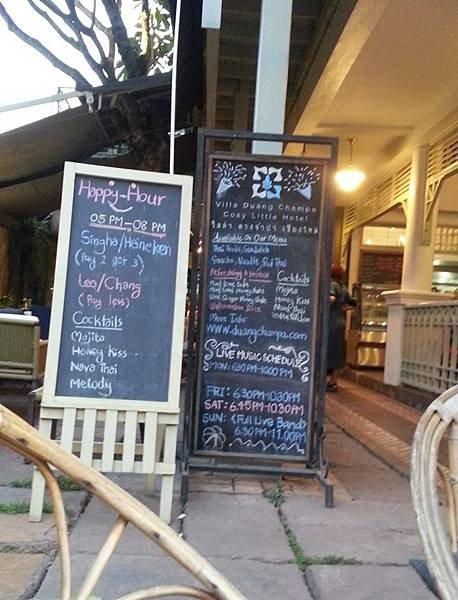 Happy-Hour
05 PM-08 PM
Singha/Heineken
(Pay 2 get 3)
Leo/Chang
(Pay less)
Cocktails
Mojito
Honey Kiss
Nava Thai
Melody
Villa Duang Champa
Cosy Little Hotel
Available On Our Menu
Thai Foods, Sandwich
Snacks, Noodle, Pad Thai
Refreshing & Herbal
Cocktails
Mojito
Honey Kiss
Watermelon
More Info:
www.duangchampa.com
LIVE MUSIC SCHEDULE
MON: 6:30 PM-10:00 PM
FRI: 6:30PM-10.30PM
SAT: 6.45 PM-10:30PM
SUN: (Full Live Band)
6:30 PM-11.00PM